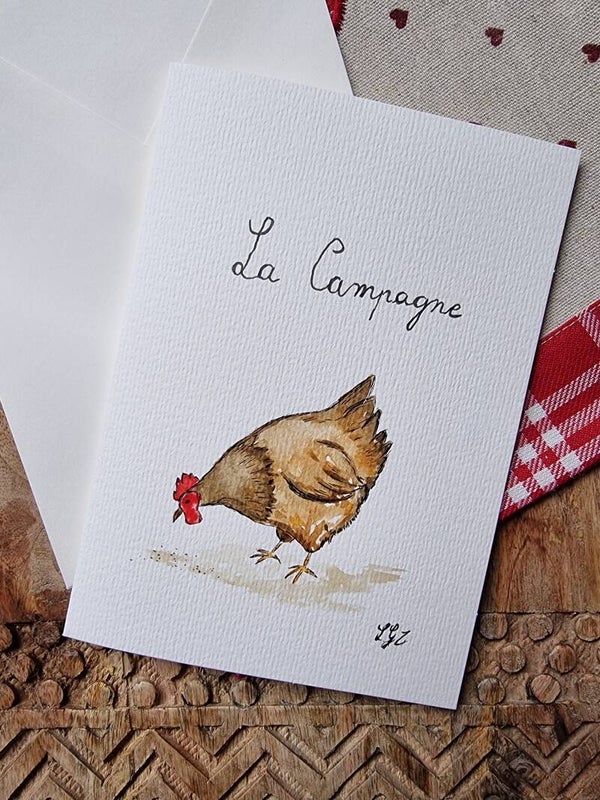 La Campagne
LGZ